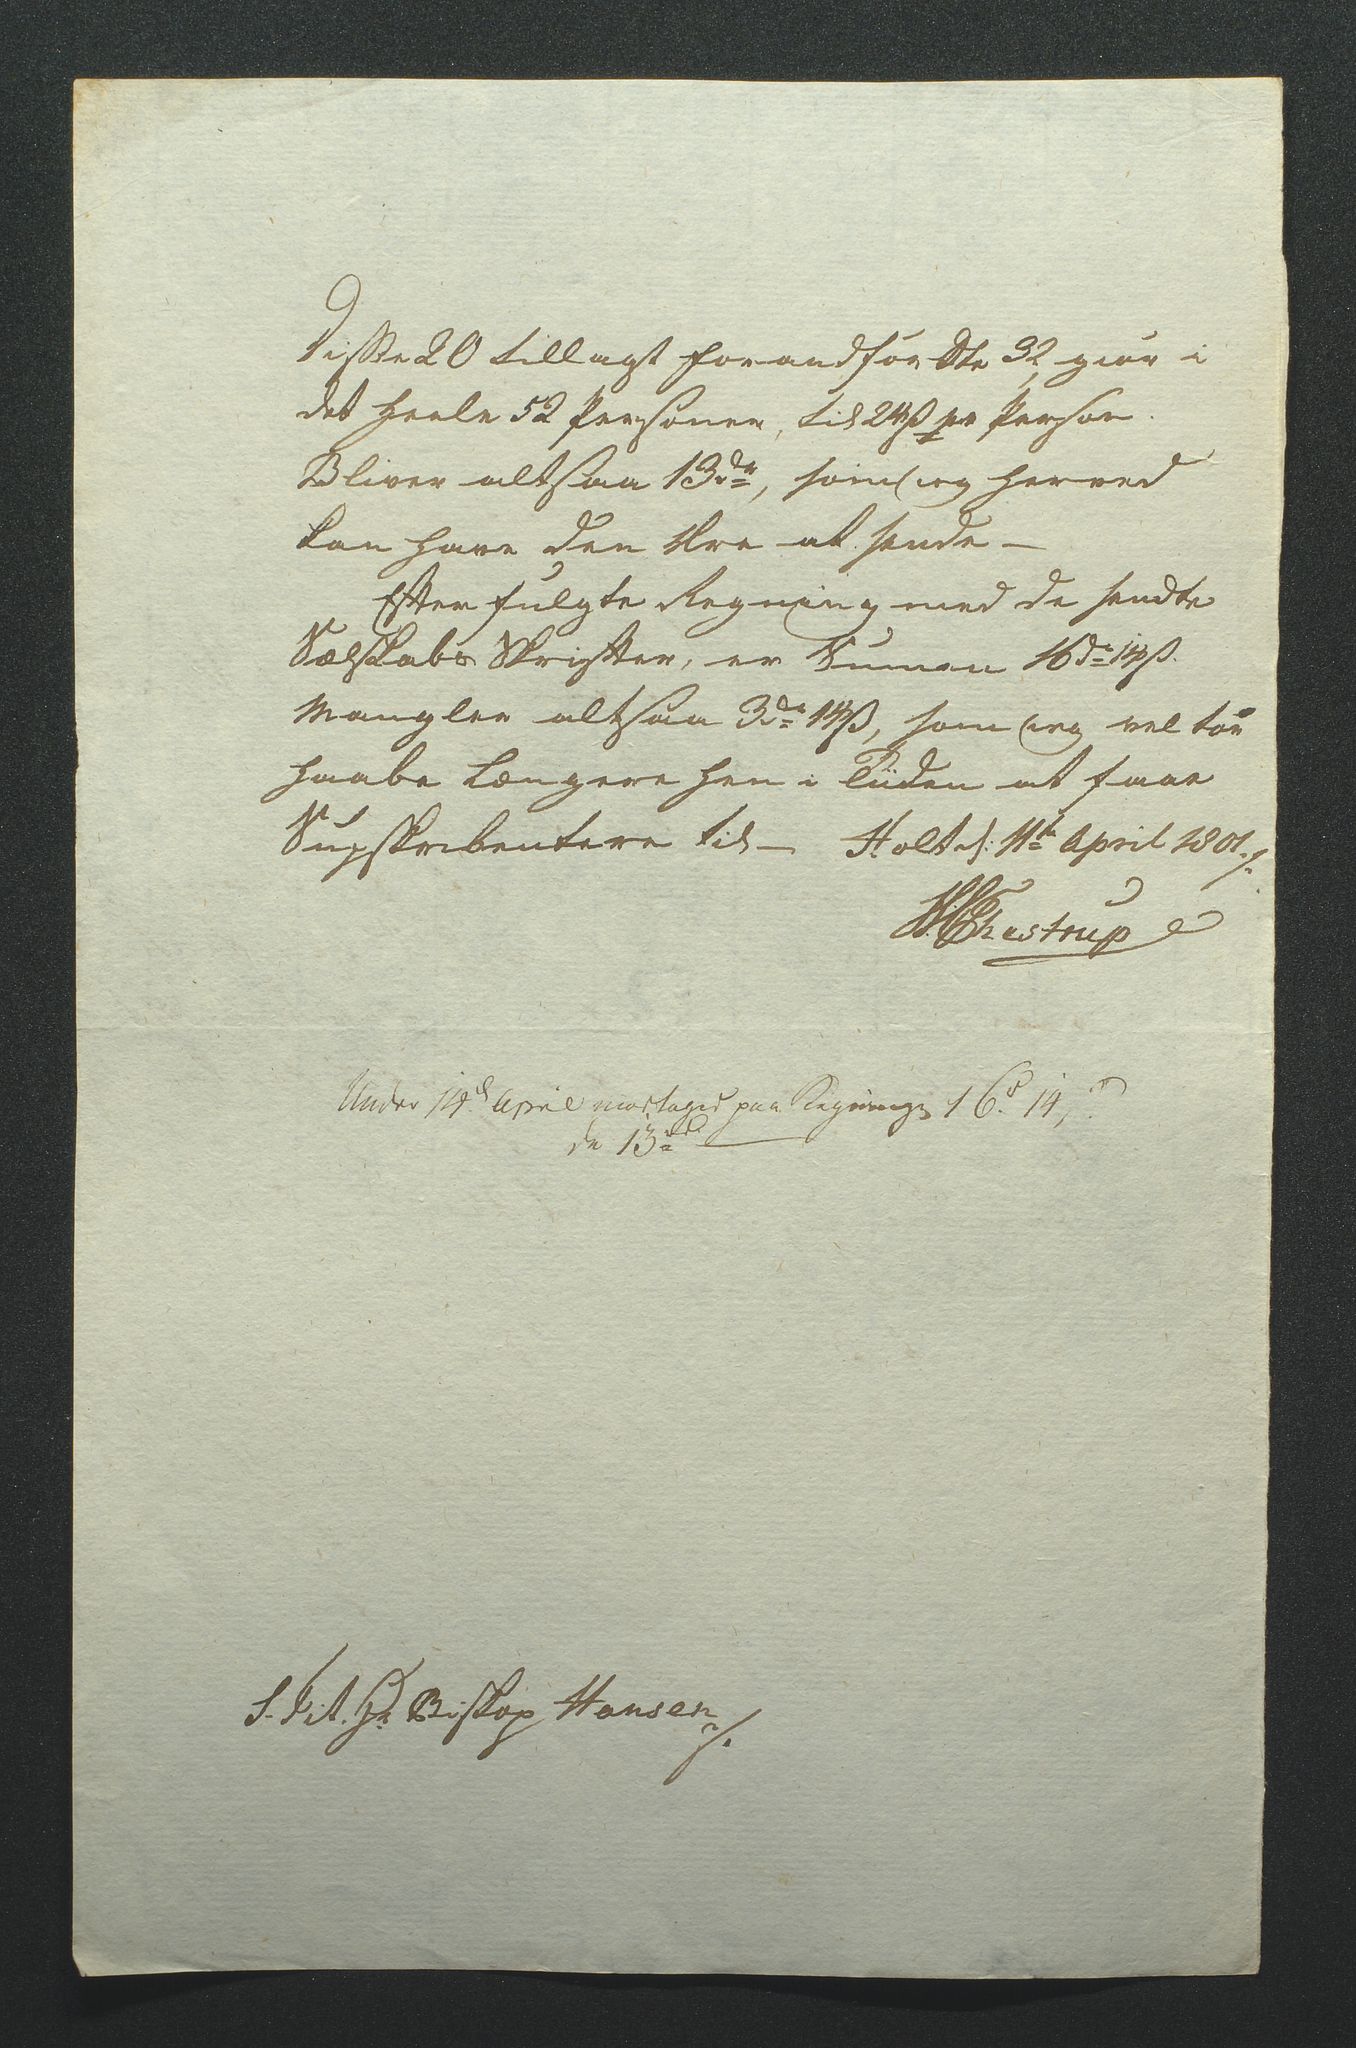 Disse 20 tillagt forandførdte 32, giør i
det heele 52 Personer, til 24ß pr Person.
Bliver altsaa 13 dr, som jeg herved
kan have den Ære at sende —
Efterfulgte Regning med de sendte
Sælskabs Skrifter, er Summen 16 dr 14ß.
Mangler altsaa 3 dr 14ß, som jeg vel tør
haabe længere hen i Tiiden at faae
Supskribentere til — Holt d: 11te April 1801./.
Under 14d April modtaget paa Regning 16 d 14,
de 13 rd
S. Tit. Hr Biskop Hansen ./.